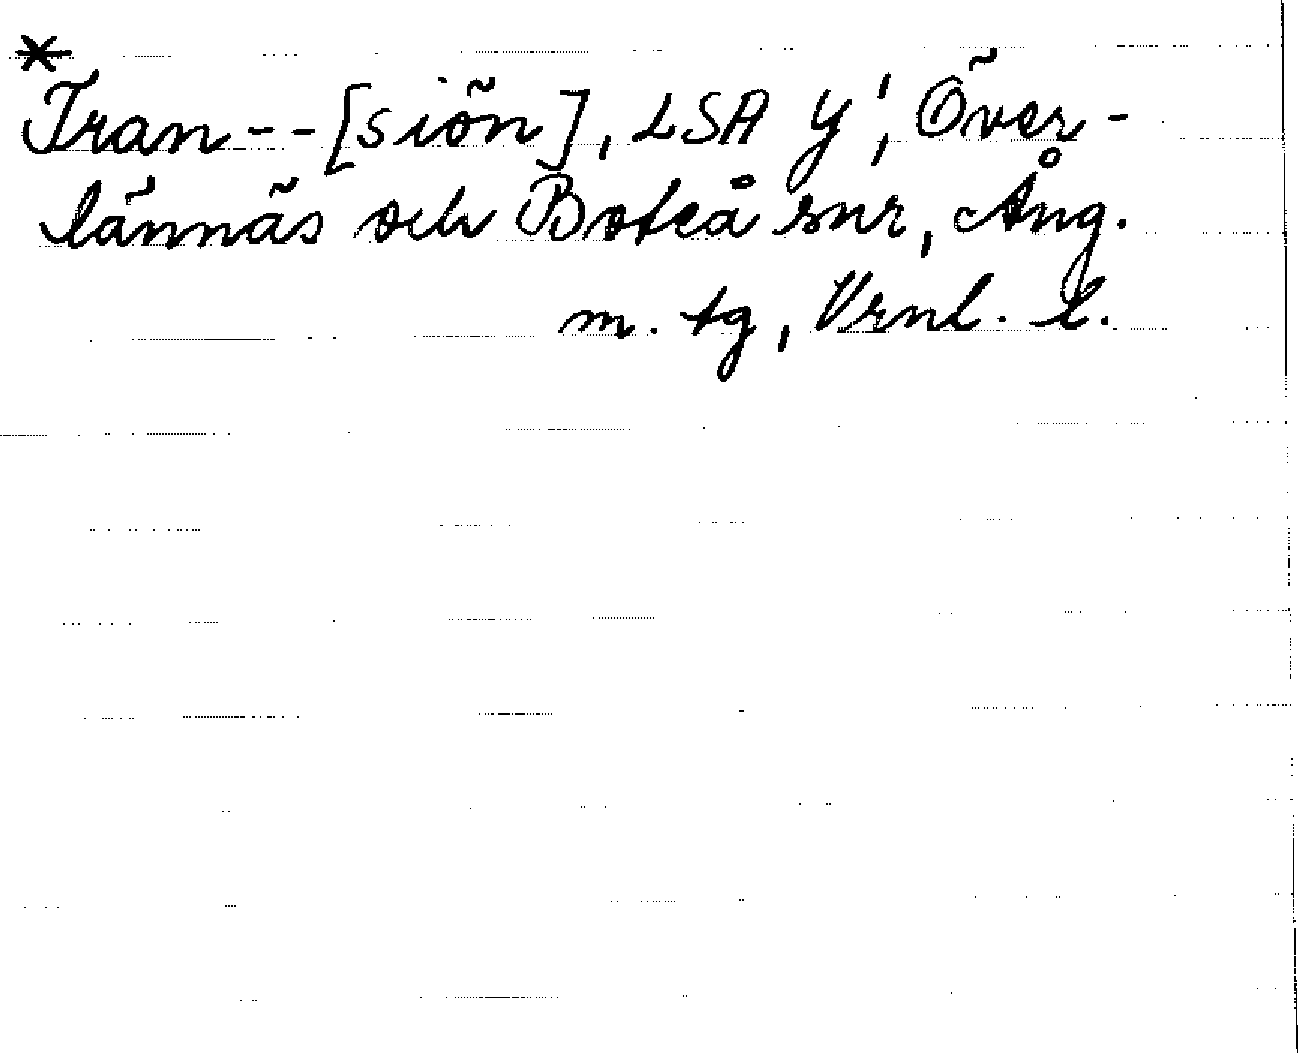 *
Tran--[siön], LSA Y', Över-
lännäs och Boteå snr, Ång.
m. tg, Vrnl. l.